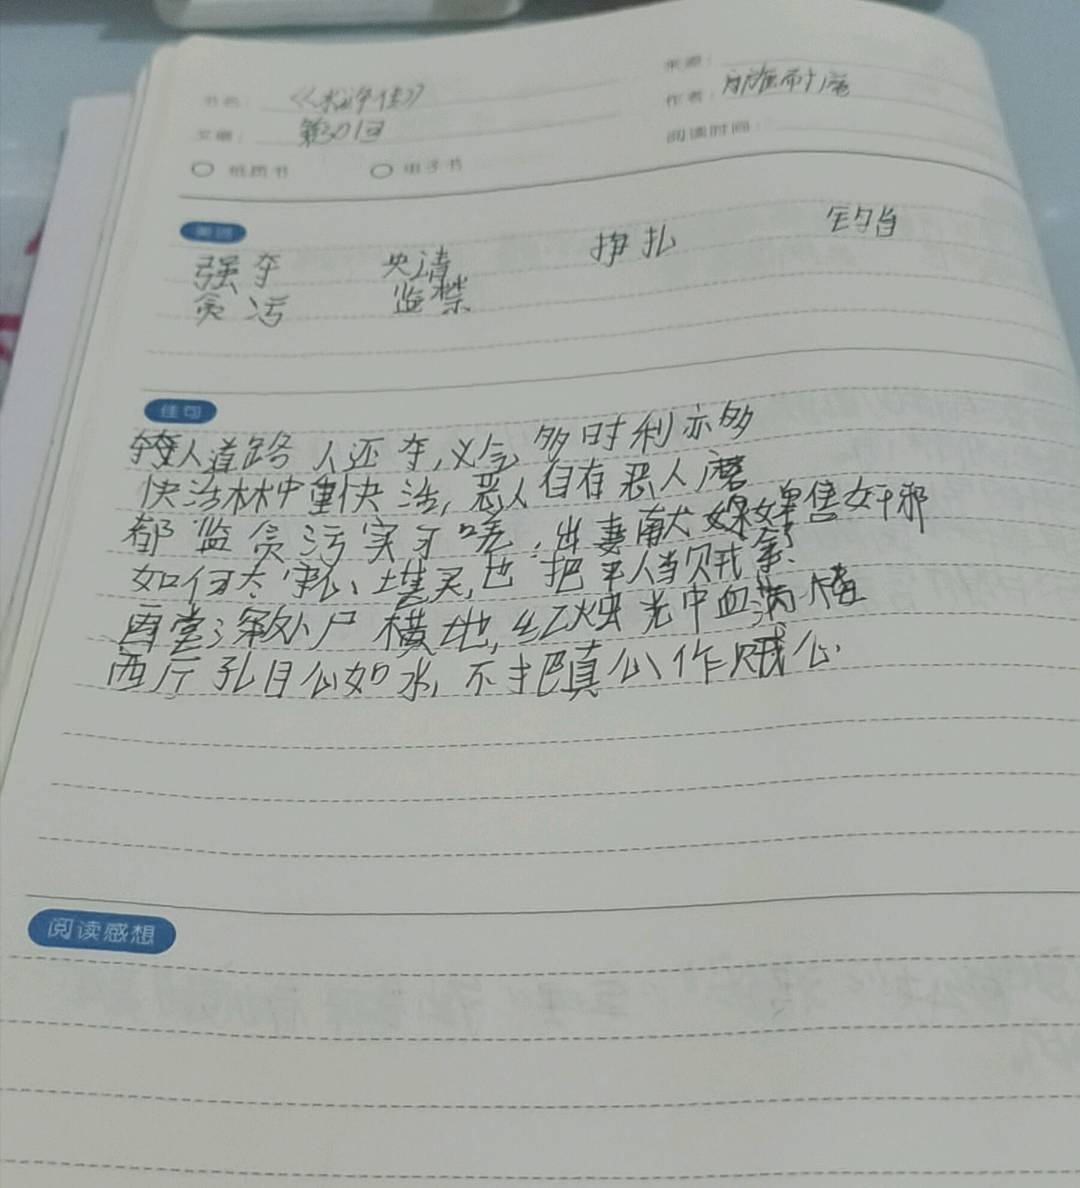 来源：
书名： 《水浒传》
作者： 施耐庵
文章： 第30回
阅读时间：
纸质书 电子书
美词
强夺 央请 挣扎 钓当
贪污 监禁
佳句
夺人道路人还夺,义气多时利亦多
快活林中重快活,恶人自有恶人磨
都监贪污实可嗟,出妻献婢售奸邪
如何太守心堪买,也把平人当贼拿.
画堂深处尸横地,红烛光中血满楼
西厅孔目心如水,不把真心作贼心.
阅读感想